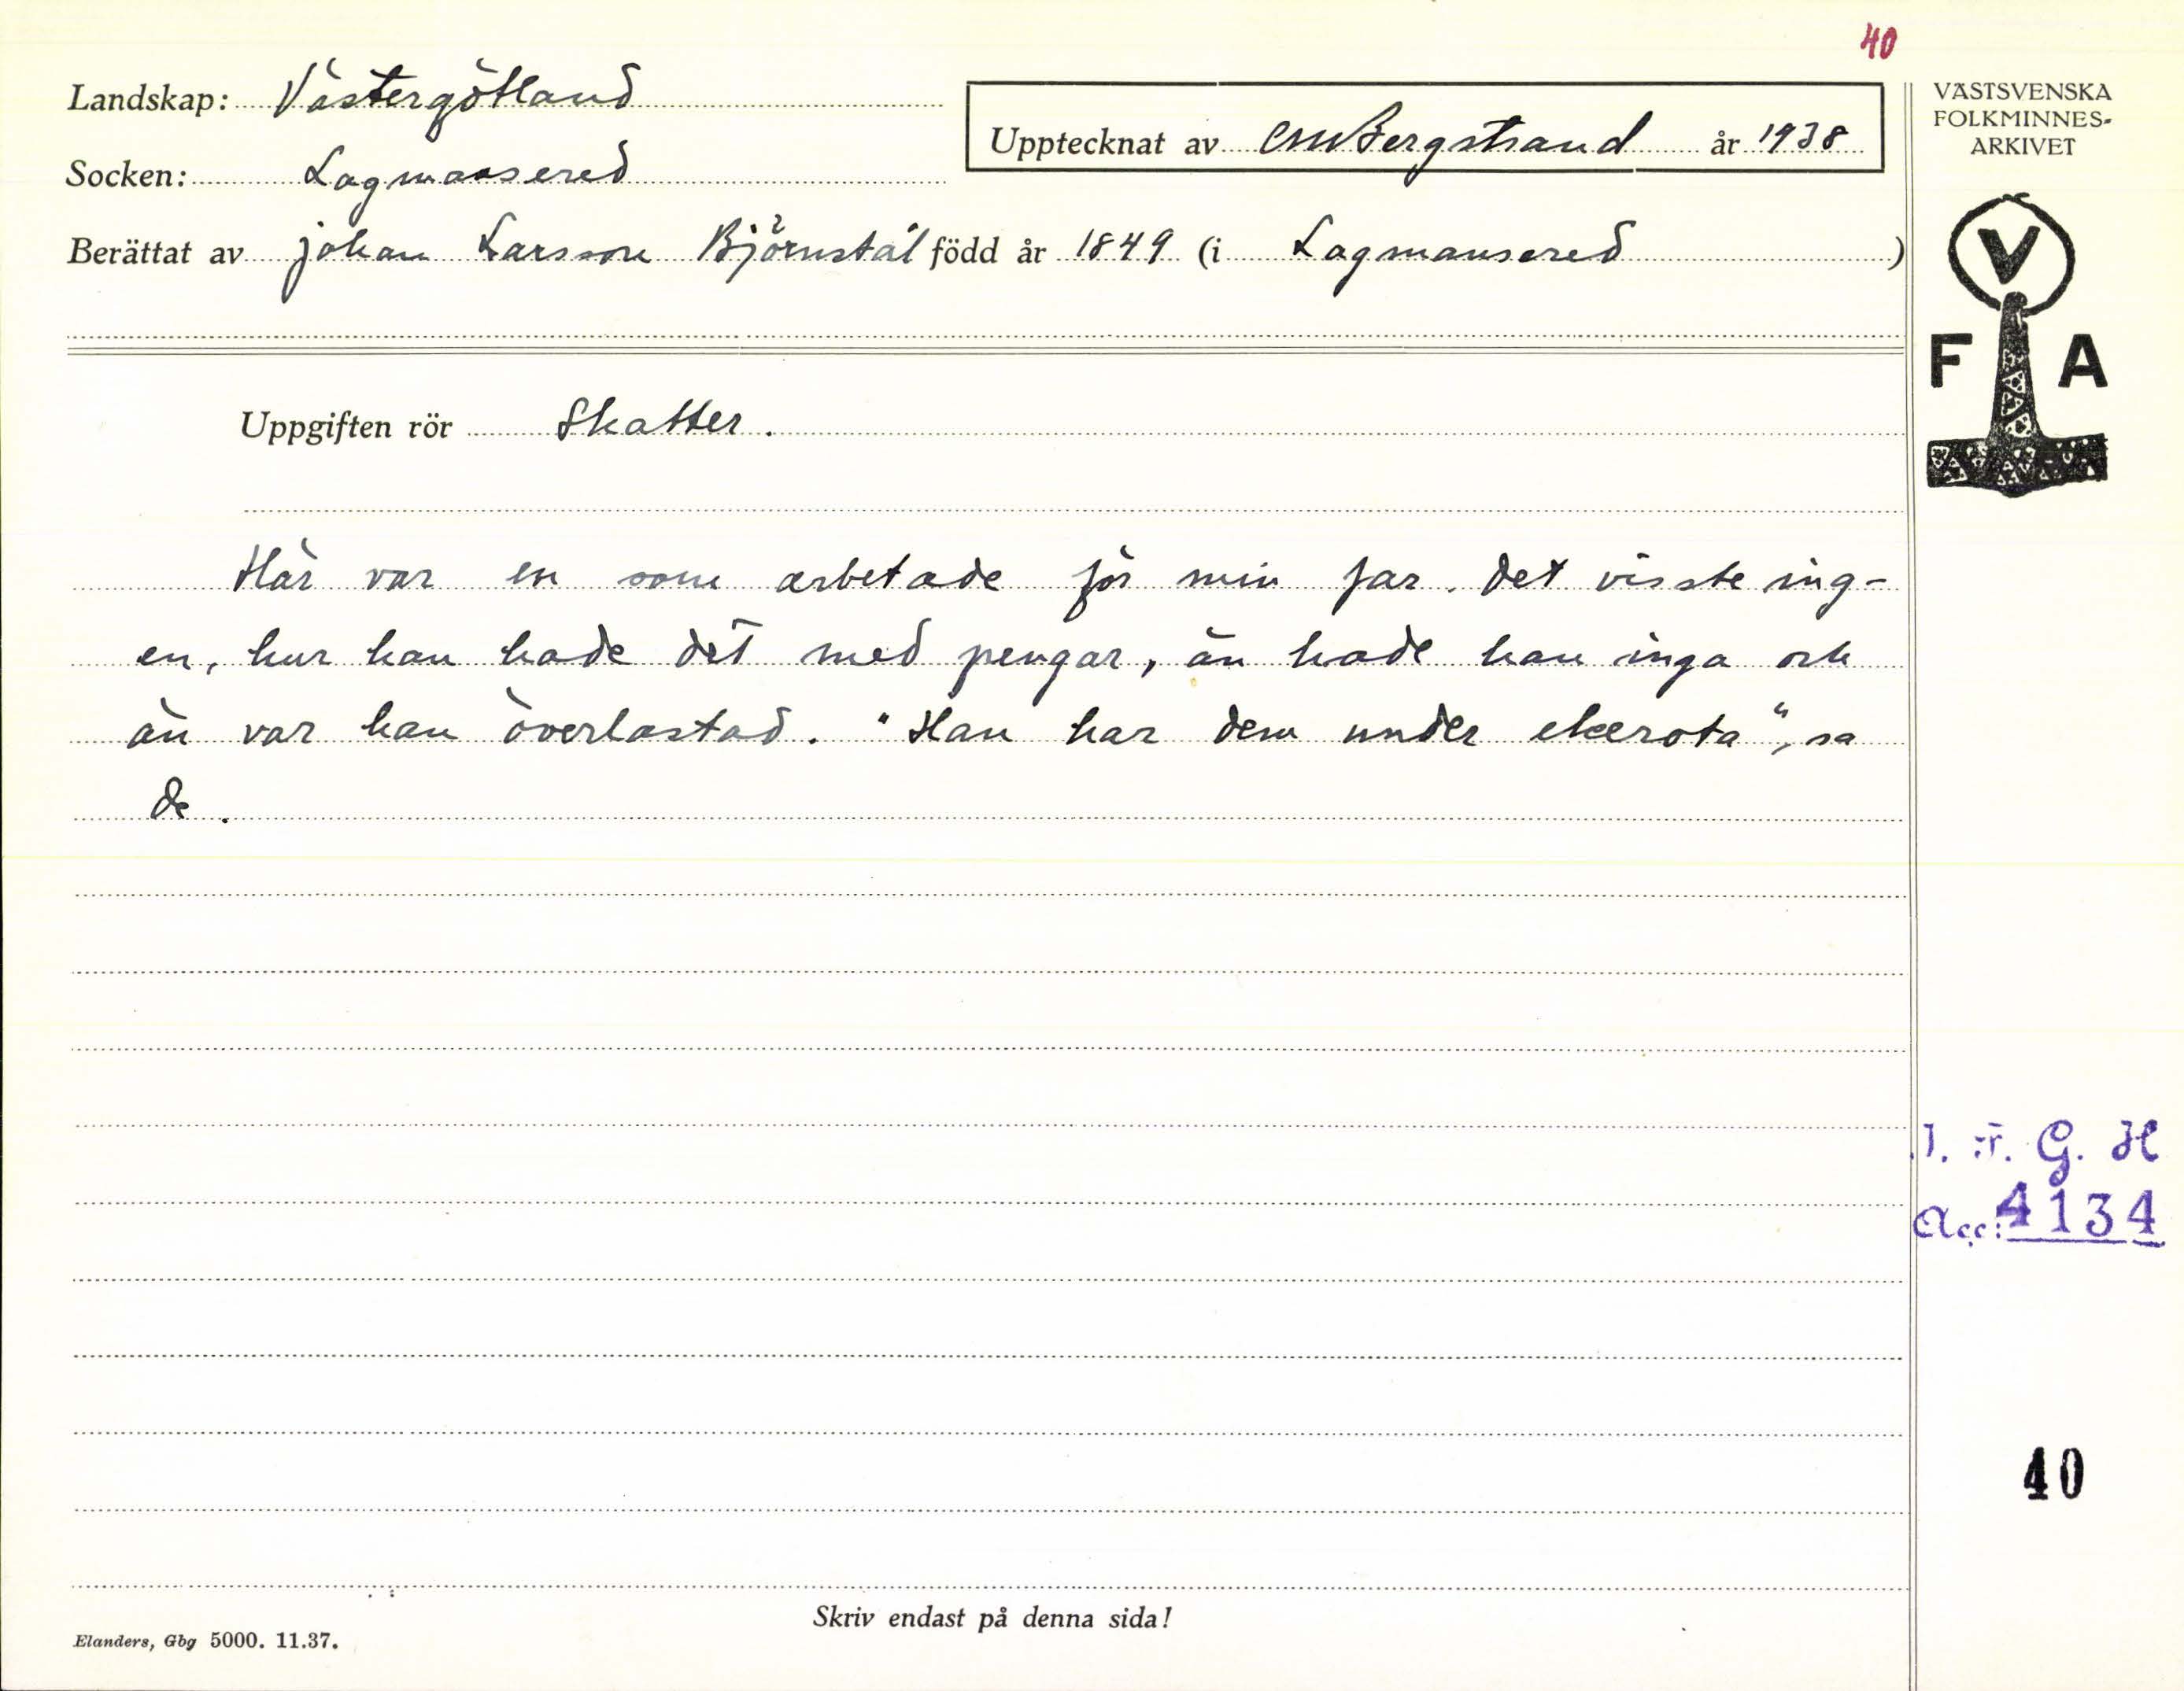 40
Landskap: Västergötland
Upptecknat av CMBergstrand år 1938
Socken: Lagmansered
Berättat av Johan Larsson Björnstål född år 1849 (i Lagmansered)
VÄSTSVENSKA
FOLKMINNES-
ARKIVET
V
F A
Uppgiften rör Skatter.
Här var en som arbetade för min far. Det visste ing-
en, hur han hade det med pengar, än hade han inga och
än var han överlastad. "Han har dem under ekerota", sa
de.
I. F. G. H
Acc: 4134
40
Skriv endast på denna sida!
Elanders, Gbg 5000. 11.37.